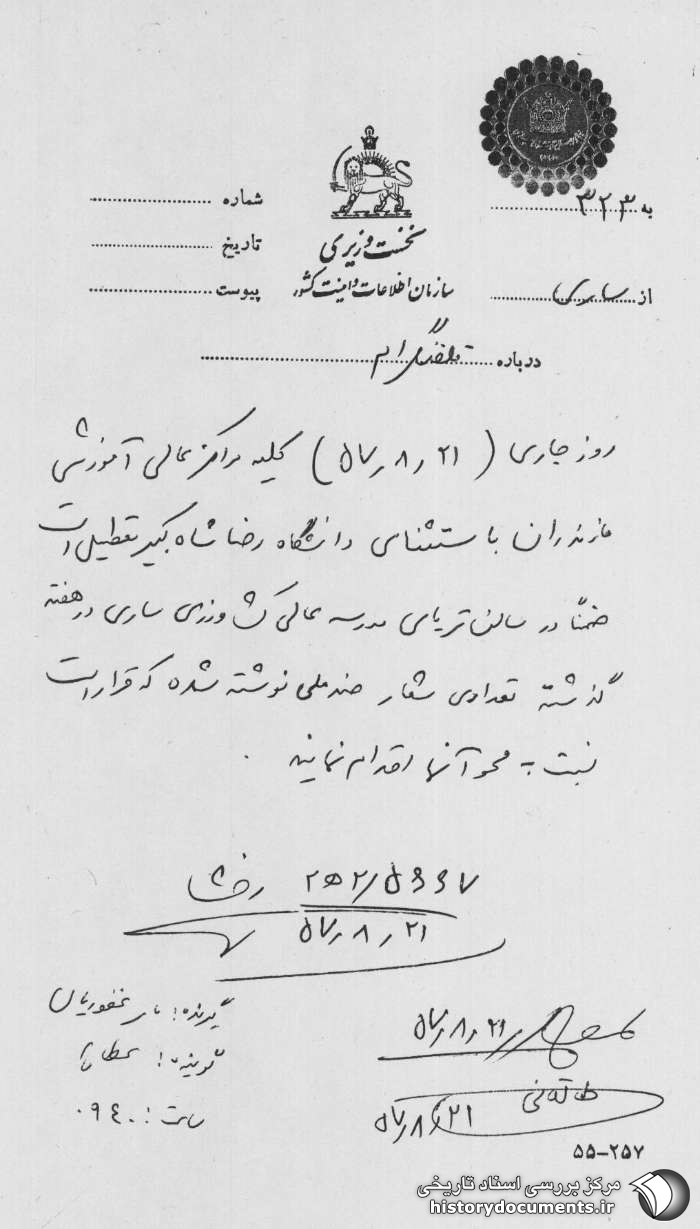 به ۳۲۳
شماره
نخست وزیری
تاریخ
سازمان اطلاعات و امنیت کشور
از ساری
پیوست
درباره تلفنگرام
روز جاری (۵۷٫۸٫۲۱) کلیه مراکز عالی آموزشی
مازندران باستثنای دانشگاه رضا شاه کبیر تعطیل است
ضمناً در سالن تریای مدرسه عالی کشاورزی ساری در هفته
گذشته تعدادی شعار ضد ملی نوشته شده که قرار است
نسبت به محو آنها اقدام نمایند.
۲ﻫ۲/۵۶۶۷ رخشا
۵۷٫۸٫۲۱
گیرنده: غفوریان
۵۷٫۸٫۲۱
گوینده: عطا
طالقونی
ساعت: ۰۹۴۰
۵۷٫۸٫۲۱
۵۵-۲۵۷
مرکز بررسی اسناد تاریخی
historydocuments.ir